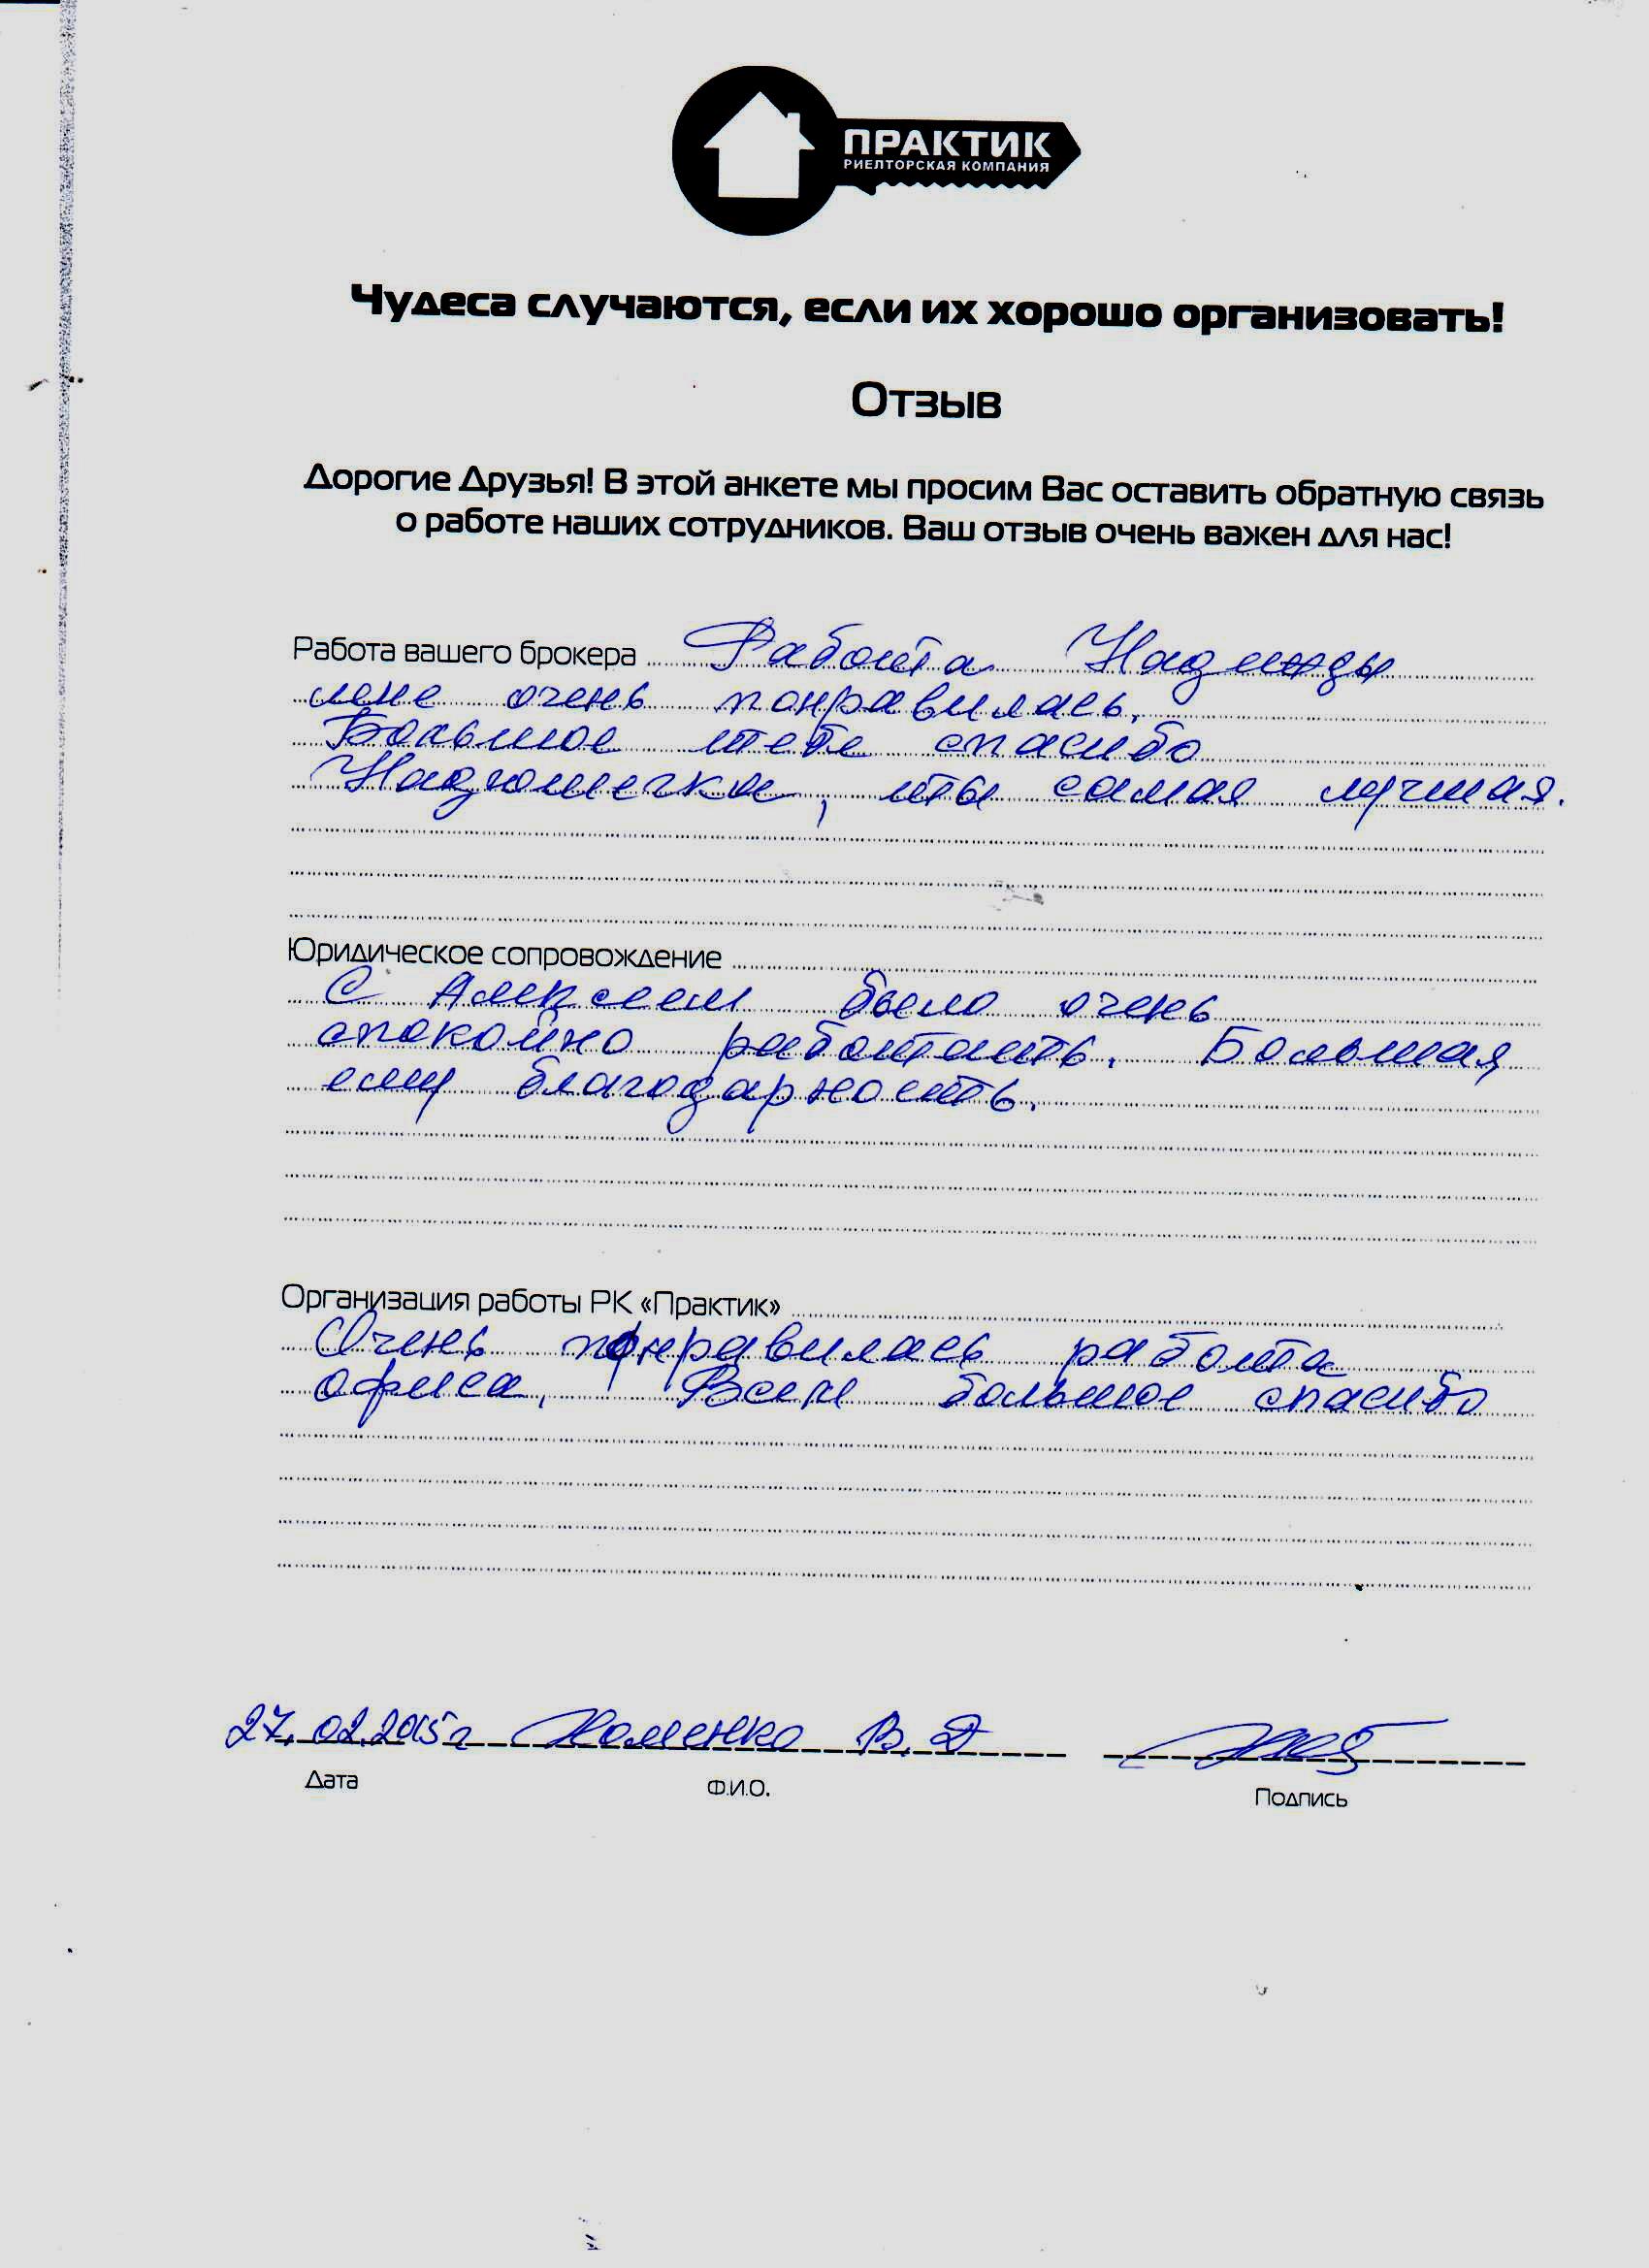 ПРАКТИК
РИЕЛТОРСКАЯ КОМПАНИЯ
Чудеса случаются, если их хорошо организовать!
Отзыв
Дорогие Друзья! В этой анкете мы просим Вас оставить обратную связь
о работе наших сотрудников. Ваш отзыв очень важен для нас!
Работа вашего брокера Работа Надежды
мне очень понравилась.
Большое тебе спасибо
Надюшечка, ты самая лучшая.
Юридическое сопровождение
С Алексеем было очень
спокойно работать. Большая
ему благодарность.
Организация работы РК «Практик»
Очень понравилась работа
офиса, Всем большое спасибо
27.02.2015г Хоменко В.Д
Дата Ф.И.О. Подпись